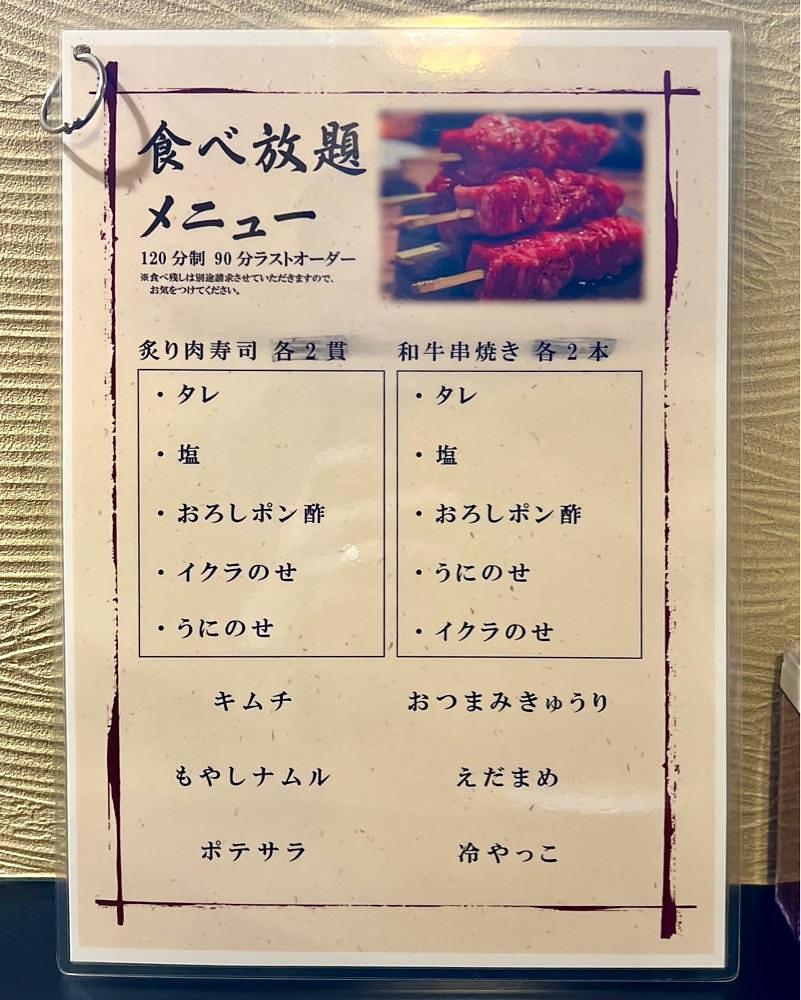 食べ放題
メニュー
120分制 90分ラストオーダー
※食べ残しは別途請求させていただきますので、
お気をつけてください。
炙り肉寿司 各2貫
・タレ
・塩
・おろしポン酢
・イクラのせ
・うにのせ
和牛串焼き 各2本
・タレ
・塩
・おろしポン酢
・うにのせ
・イクラのせ
キムチ
おつまみきゅうり
もやしナムル
えだまめ
ポテサラ
冷やっこ